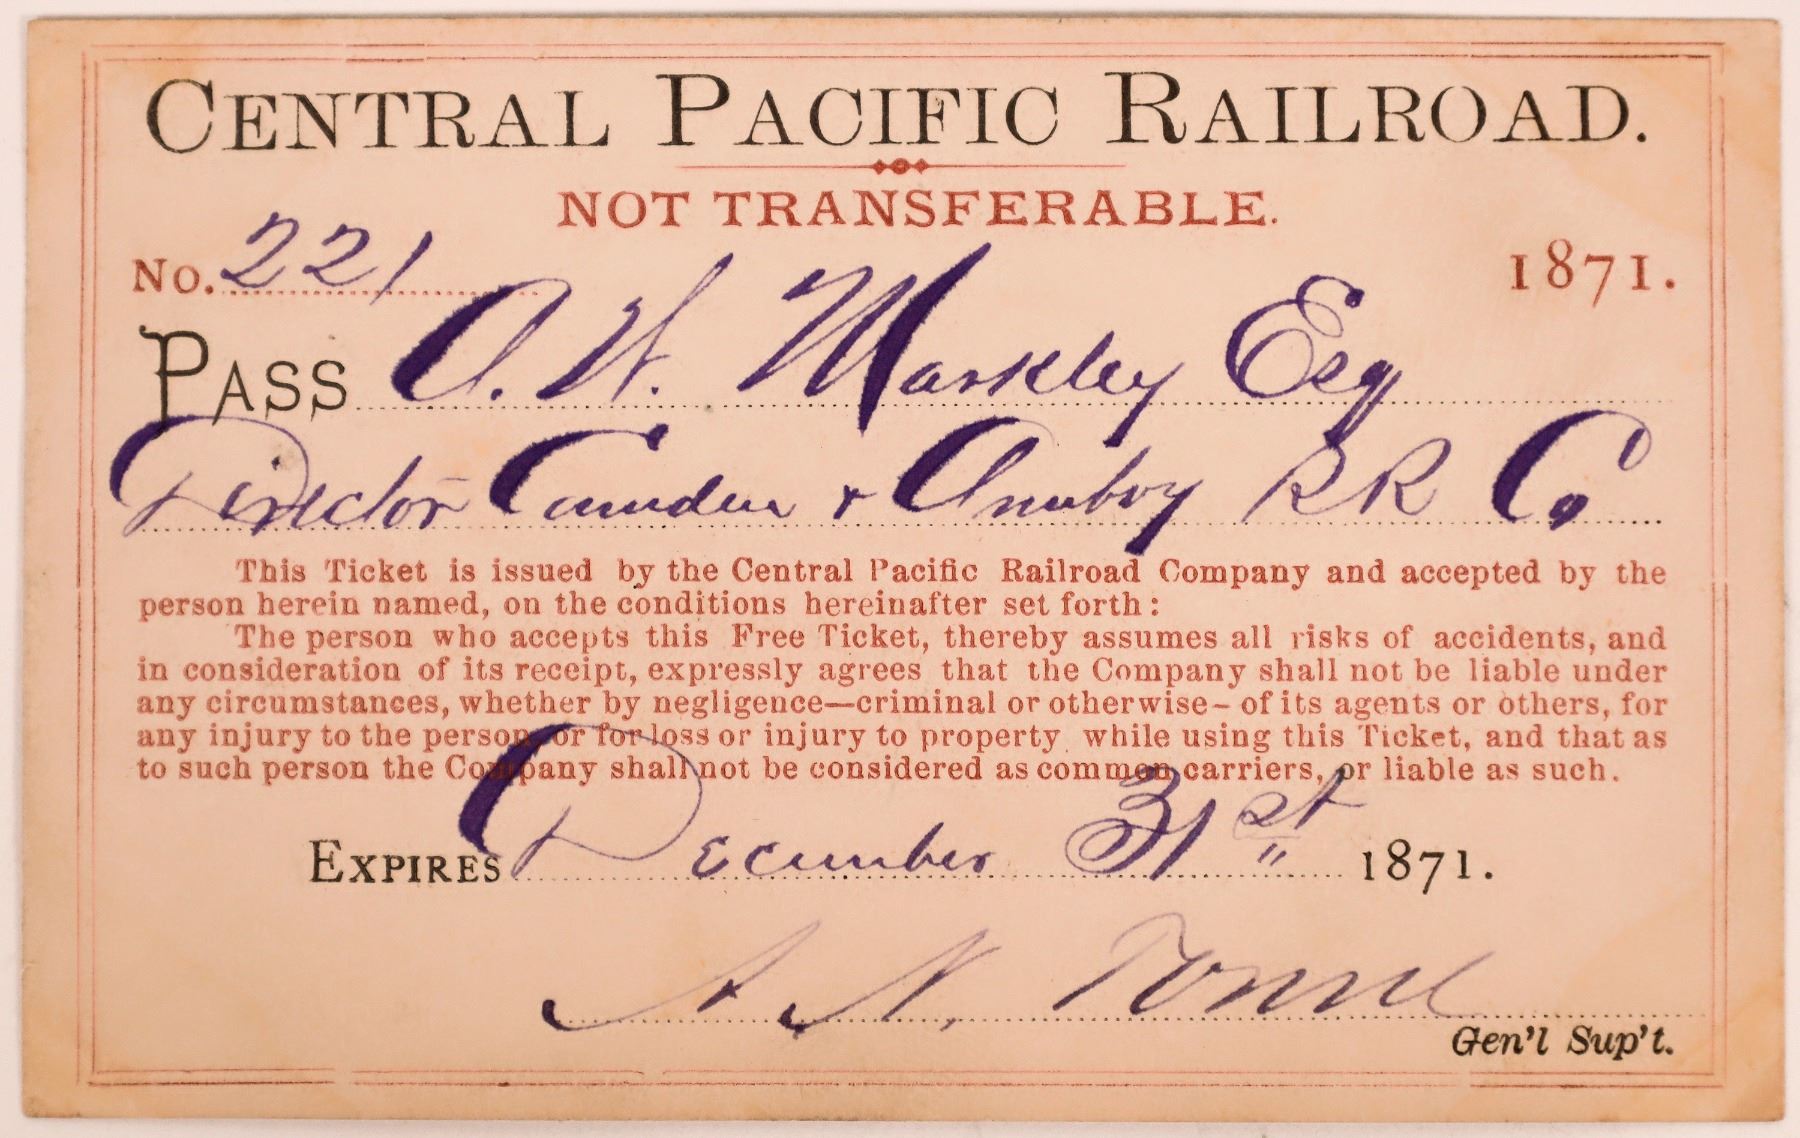 CENTRAL PACIFIC RAILROAD.
NOT TRANSFERABLE.
No. 221
1871.
PASS A. W. Markley Esq
Director Camden & Amboy RR Co
This Ticket is issued by the Central Pacific Railroad Company and accepted by the
person herein named, on the conditions hereinafter set forth:
The person who accepts this Free Ticket, thereby assumes all risks of accidents, and
in consideration of its receipt, expressly agrees that the Company shall not be liable under
any circumstances, whether by negligence—criminal or otherwise–of its agents or others, for
any injury to the person, or for loss or injury to property while using this Ticket, and that as
to such person the Company shall not be considered as common carriers, or liable as such.
EXPIRES December 31st 1871.
A. N. Towne
Gen'l Sup't.